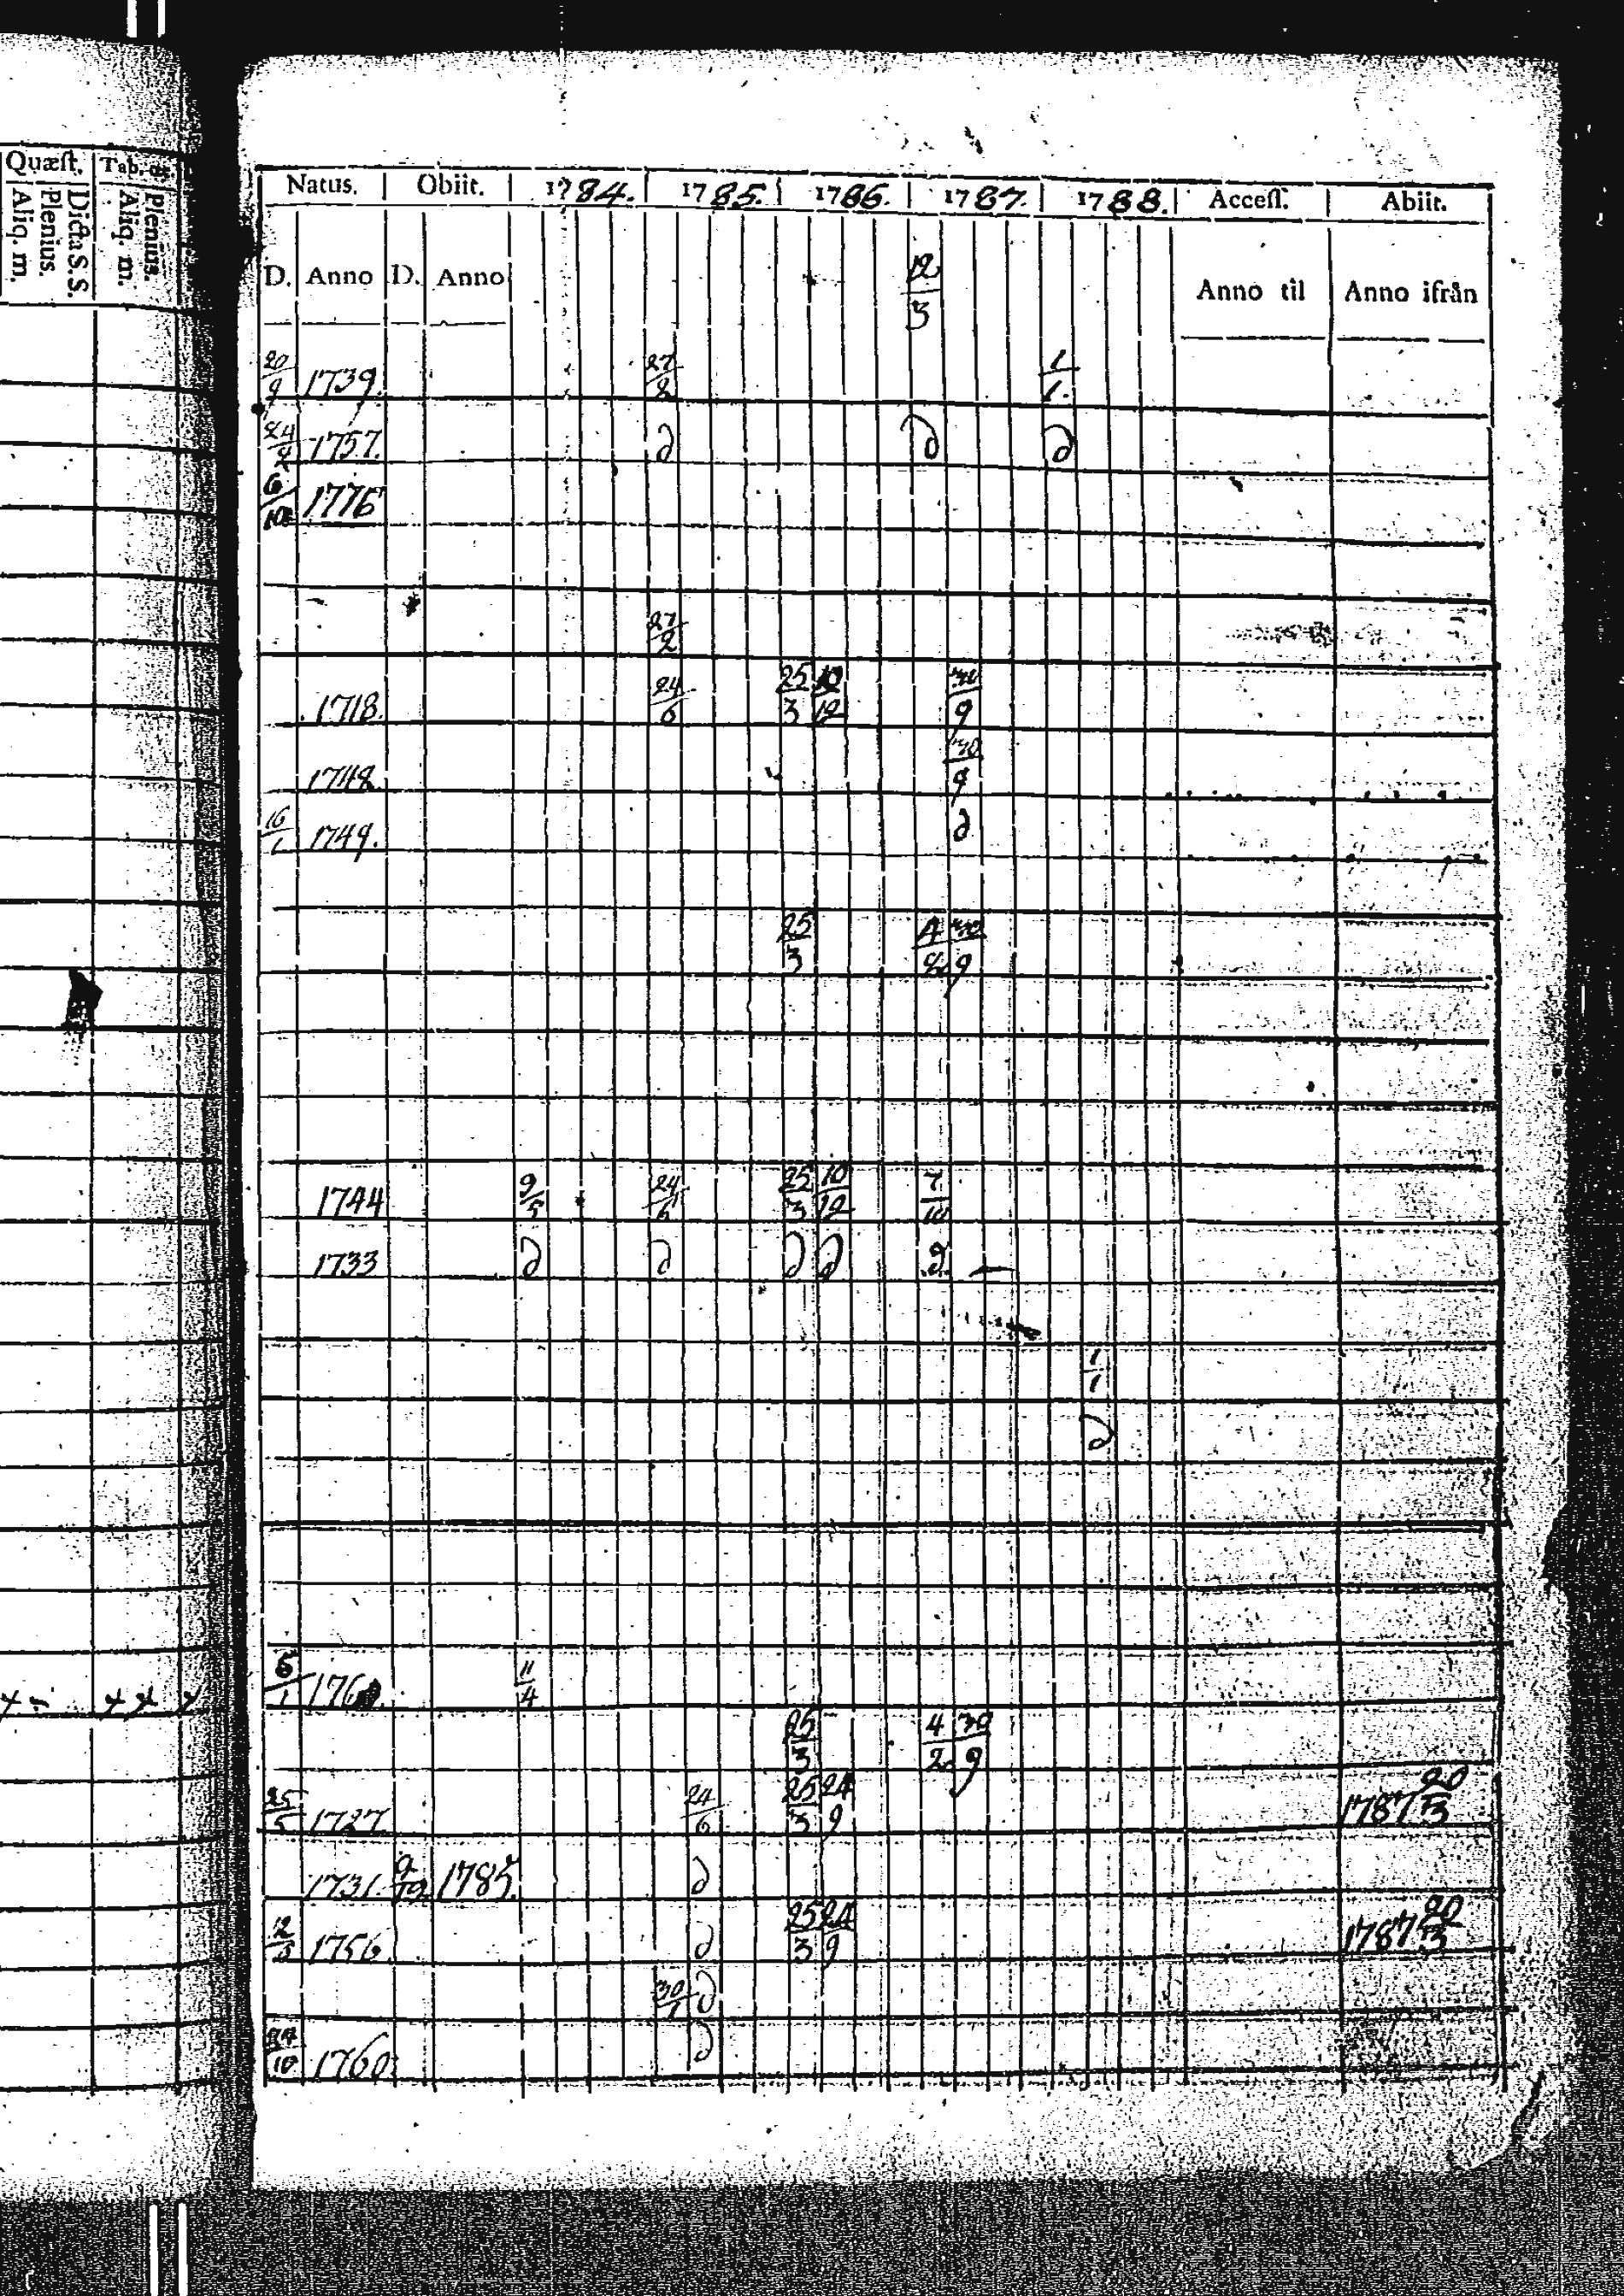 Quæst. Tab. œc.
Aliq. m. Plenius. Dicta S. S. Aliq. m. Plenius.
Natus. Obiit. 1784. 1785. 1786. 1787. 1788. Access. Abiit.
D. Anno D. Anno 12/3 Anno til Anno ifrån
20/9 1739. 27/2 1/1.
24/2 1757. д д д
6/10 1776
27/2
1718. 24/6 25/3 10/12 30/9
1748. 30/9
16/1 1749. д
25/3 4/2 30/9
1744 9/5 24/6 25/3 10/12 7/10
1733 д д д д д
1/1
д
5/1 11/4
25/3 4/2 30/9
25/5 1727. 24/6 25/3 24/9 1787 20/3
1731. 9/12 1785. д
12/3 1756 д 25/3 24/9 1787 20/3
30/1 д
24/10 1760 д